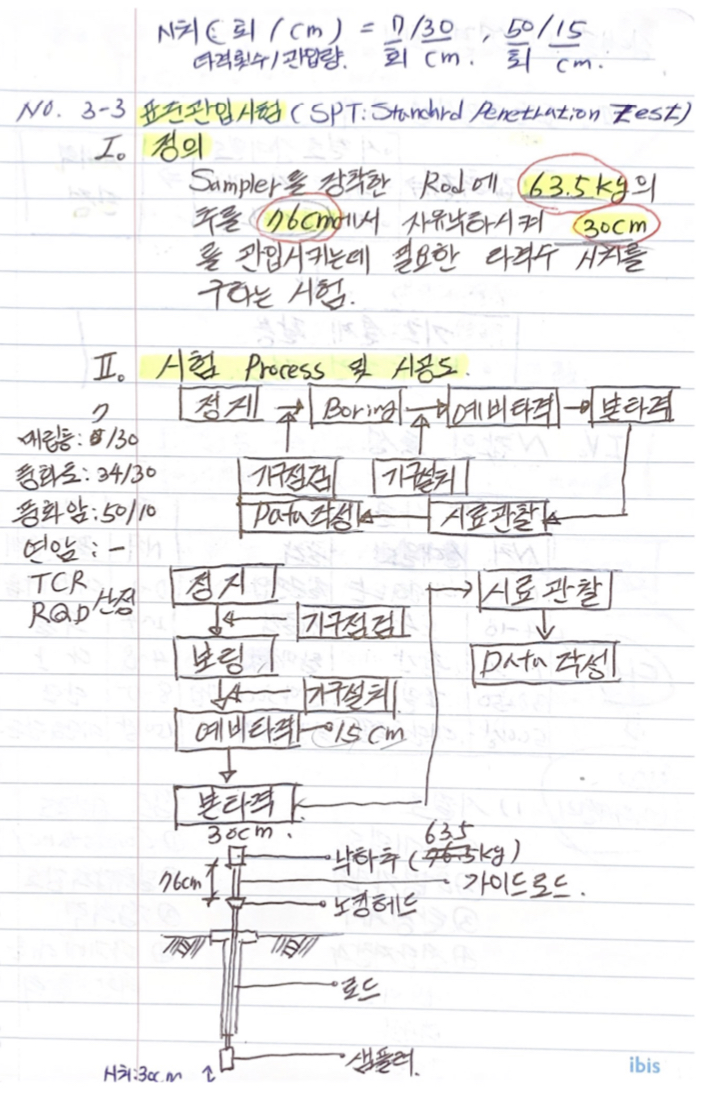 N치 (회/cm) = 7/30, 50/15
타격횟수/관입량. 회 cm. 회 cm.
NO. 3-3 표준관입시험 (SPT: Standard Penetration Test)
I. 정의
Sampler를 장착한 Rod에 63.5kg의
추를 76cm에서 자유낙하시켜 30cm
를 관입시키는데 필요한 타격수 N치를
구하는 시험.
II. 시험 Process 및 시공도.
정지 → Boring → 예비타격 → 본타격
7
매립층: /30
풍화토: 34/30
기구점검 기구설치
풍화암: 50/10
Data작성 시료관찰
연암: -
TCR
RQD 산정
정지 시료관찰
기구점검
보링 Data 작성
기구설치
예비타격 15cm
본타격
30cm.
63.5
낙하추 (76.5kg)
76cm 가이드로드.
노킹헤드
로드
샘플러.
N치:30cm
ibis